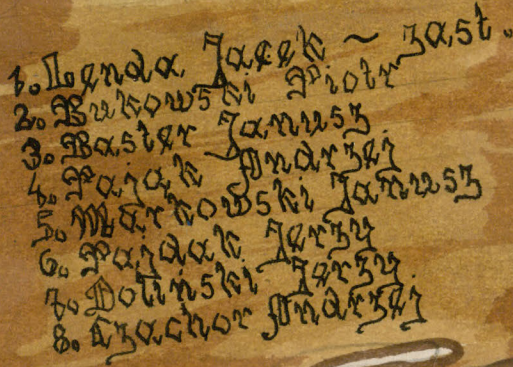 1. Lenda Jacek ~ zast.
2. Bukowski Piotr
3. Baster Janusz
4. Pająk Andrzej
5. Markowski Janusz
6. Pajdak Jerzy
7. Doliński Jerzy
8. Czachor Andrzej